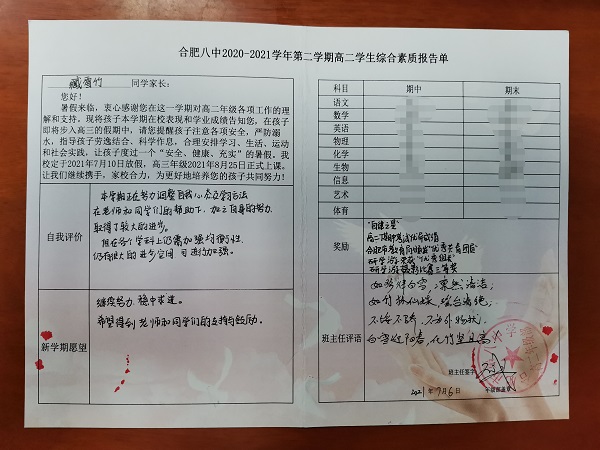 合肥八中2020-2021学年第二学期高二学生综合素质报告单
臧青竹 同学家长:
您好!
暑假来临,衷心感谢您在这一学期对高二年级各项工作的理
解和支持,现将孩子本学期在校表现和学业成绩告知您,在孩子
即将步入高三的假期中,请您提醒孩子注意各项安全,严防溺
水,指导孩子劳逸结合、科学作息,合理安排学习、生活、运动
和社会实践,让孩子度过一个“安全、健康、充实”的暑假。我
校定于2021年7月10日放假,高三年级2021年8月25日正式上课。
让我们继续携手,家校合力,为更好地培养您的孩子共同努力!
自我评价
本学期正在努力调整自我心态及学习方法
在老师和同学们的帮助下,加之自身的努力
取得了较大的进步。
但在各个学科上仍需加强均衡性
仍有很大的进步空间,可进行加强。
新学期愿望
继续努力,稳中求进。
希望得到老师和同学们的支持与鼓励。
科目 期中 期末
语文
数学
英语
物理
化学
生物
信息
艺术
体育
奖励
“自律之星”
高二期中考试优秀成绩
合肥市教育局颁发“优秀共青团员”
研学游荣获“优秀组长”
研学游摄影比赛三等奖
班主任评语
如松伴白雪,凛然
如竹
不骄不躁,不为外物扰,
白雪
班主任签字:
2021年7月6日 年级部盖章